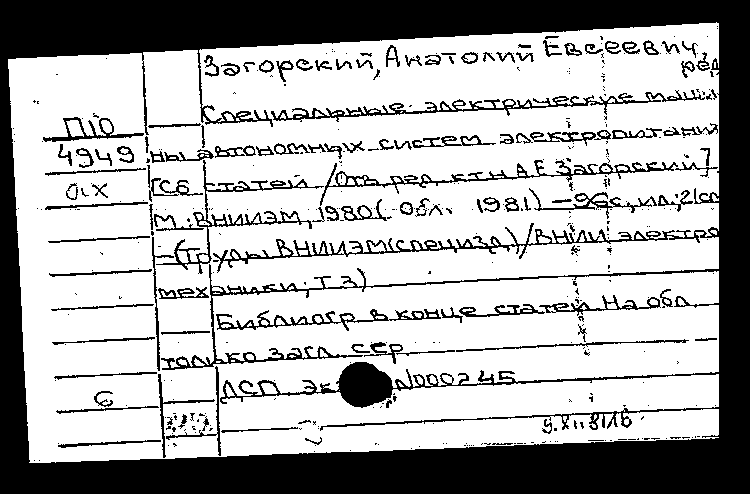 Загорский, Анатолий Евсеевич,
ред
Специальные электрические маши-
ны автономных систем электропитания
[Сб статей / Отв ред к т н А Е Загорский]
М.: ВНИИЭМ, 1980 ( Обл. 1981) – 96 с, ил.; 21 см
– (Труды ВНИИЭМ (специзд) / ВНИИ электро
механики; Т 3)
Библиогр в конце статей На обл.
только загл. сер.
ДСП N000245
П10
4949
6